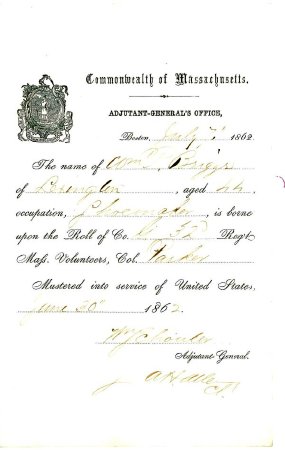 Commonwealth of Massachusetts.
ADJUTANT-GENERAL'S OFFICE,
Boston, July 7, 1862
The name of Wm. Briggs
of Lexington, aged 44,
occupation, Shoemaker, is borne
upon the Roll of Co. Regt
Mass. Volunteers, Col. Parker
Mustered into service of United States,
June 20 1862.
Wm Schouler
Adjutant General.